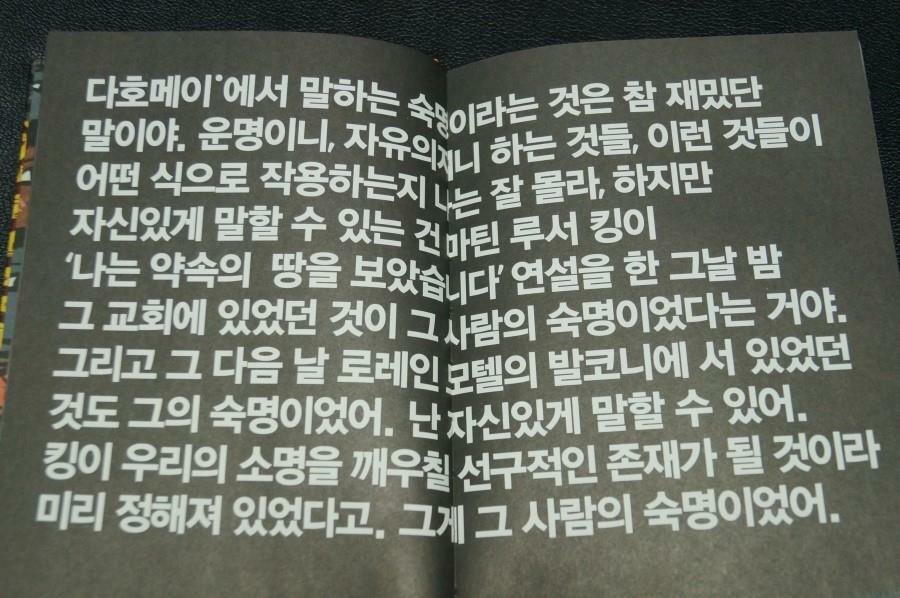 다호메이*에서 말하는 숙명이라는 것은 참 재밌단
말이야. 운명이니, 자유의지니 하는 것들, 이런 것들이
어떤 식으로 작용하는지 나는 잘 몰라, 하지만
자신있게 말할 수 있는 건 마틴 루서 킹이
‘나는 약속의 땅을 보았습니다’ 연설을 한 그날 밤
그 교회에 있었던 것이 그 사람의 숙명이었다는 거야.
그리고 그 다음 날 로레인 모텔의 발코니에 서 있었던
것도 그의 숙명이었어. 난 자신있게 말할 수 있어.
킹이 우리의 소명을 깨우칠 선구적인 존재가 될 것이라
미리 정해져 있었다고. 그게 그 사람의 숙명이었어.